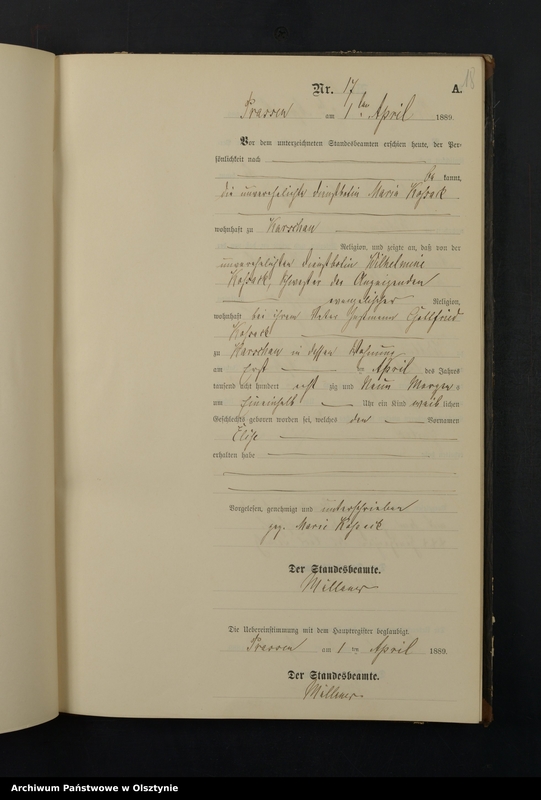 18
Nr. 17 A.
Prassen am 1 ten April 1889.
Vor dem unterzeichneten Standesbeamten erschien heute, der Per-
sönlichkeit nach
be kannt,
die unverehelichte Dienstbotin Marie Kossack
wohnhaft zu Karschau
Religion, und zeigte an, daß von der
unverehelichten Dienstbotin Wilhelmine
Kossack, Schwester der Anzeigenden
evangelischer Religion,
wohnhaft bei ihrem Vater Gottfried
Kossack
zu Karschau in dessen Wohnung
am April des Jahres
tausend acht hundert acht zig und Neun Morgen
um Uhr ein Kind weib lichen
Geschlechts geboren worden sei, welches den Vornamen
Elise
erhalten habe
Vorgelesen, genehmigt und unterschrieben
gez. Marie Kossack
Der Standesbeamte.
Die Uebereinstimmung mit dem Hauptregister beglaubigt.
Prassen am 1 ten April 1889.
Der Standesbeamte.
Archiwum Państwowe w Olsztynie